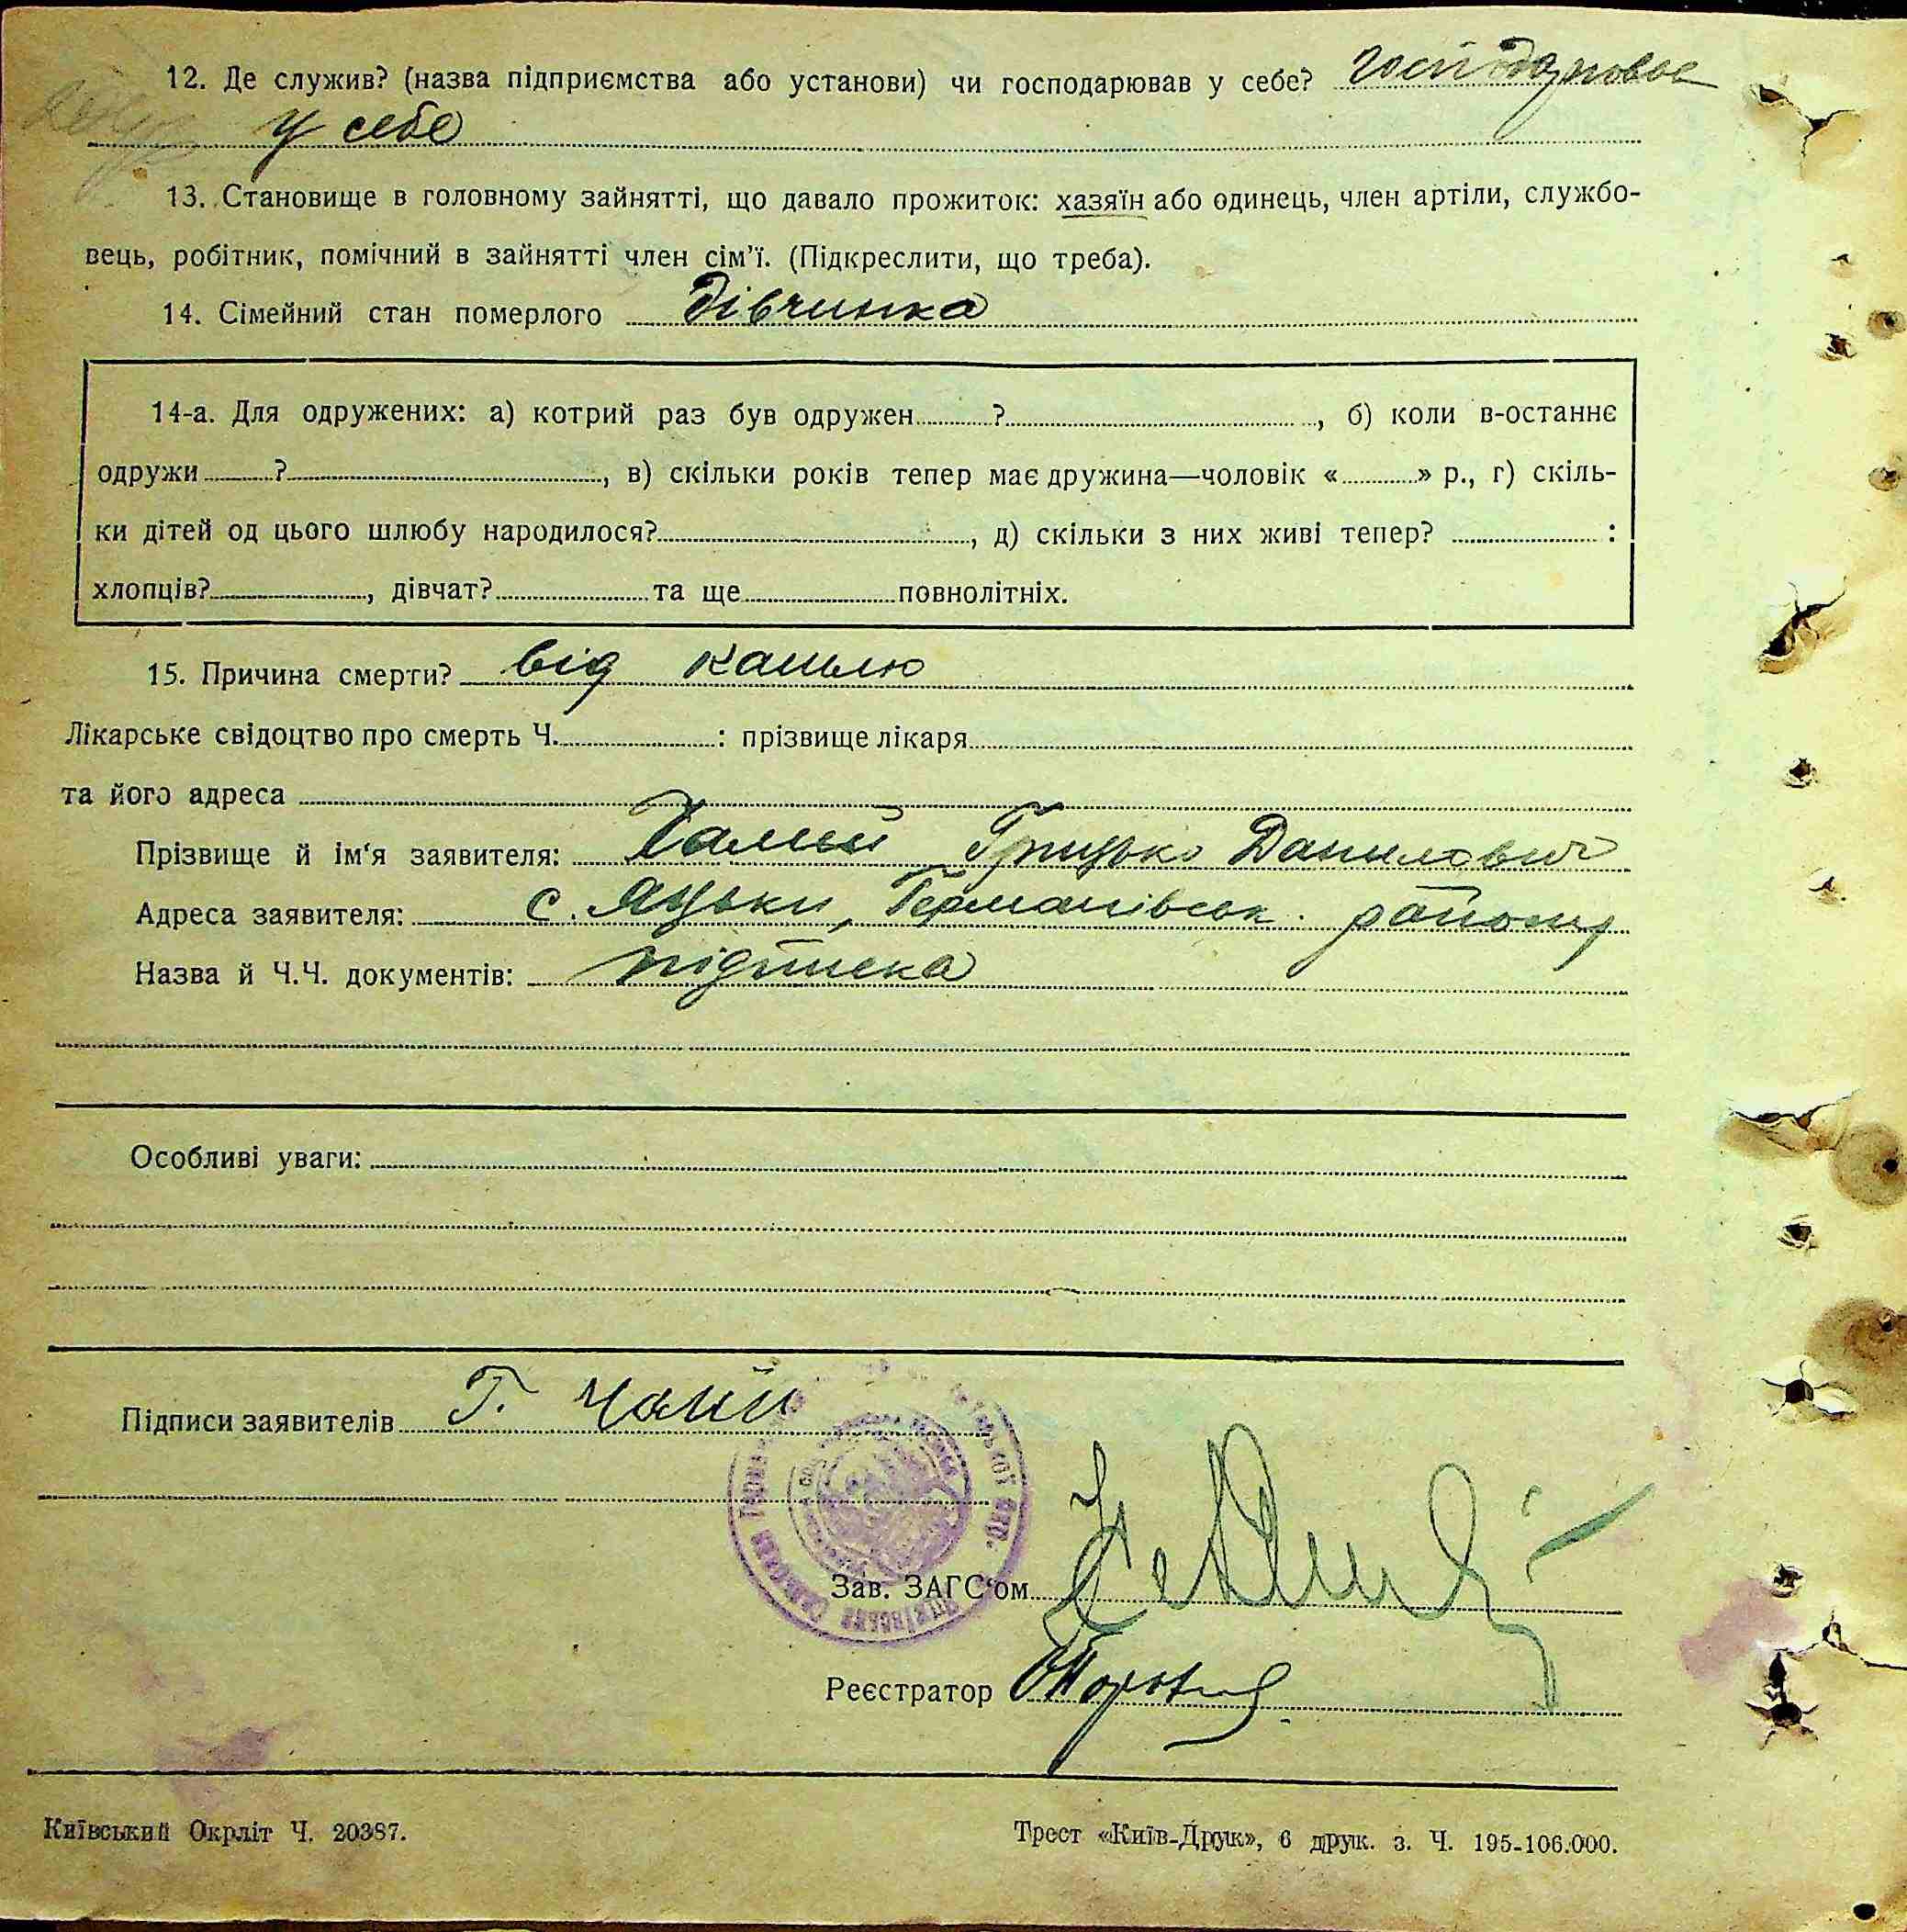 12. Де служив? (назва підприємства або установи) чи господарював у себе? господарював
у себе
13. Становище в головному зайнятті, що давало прожиток: хазяїн або одинець, член артіли, службо-
вець, робітник, помічний в зайнятті член сім'ї. (Підкреслити, що треба).
14. Сімейний стан померлого дівчинка
14-а. Для одружених: а) котрий раз був одружен ? , б) коли в-останнє
одружи ? , в) скільки років тепер має дружина—чоловік « » р., г) скіль-
ки дітей од цього шлюбу народилося? , д) скільки з них живі тепер? :
хлопців? , дівчат? та ще повнолітніх.
15. Причина смерти? від кашлю
Лікарське свідоцтво про смерть Ч. : прізвище лікаря
та його адреса
Прізвище й ім'я заявителя: Грицько Данилович
Адреса заявителя: с. Яцьки, Германівськ. району
Назва й Ч.Ч. документів: підписка
Особливі уваги:
Підписи заявителів Г.
Зав. ЗАГС'ом
Реєстратор
Київський Окрліт Ч. 20387.
Трест «Київ-Друк», 6 друк. з. Ч. 195-106.000.